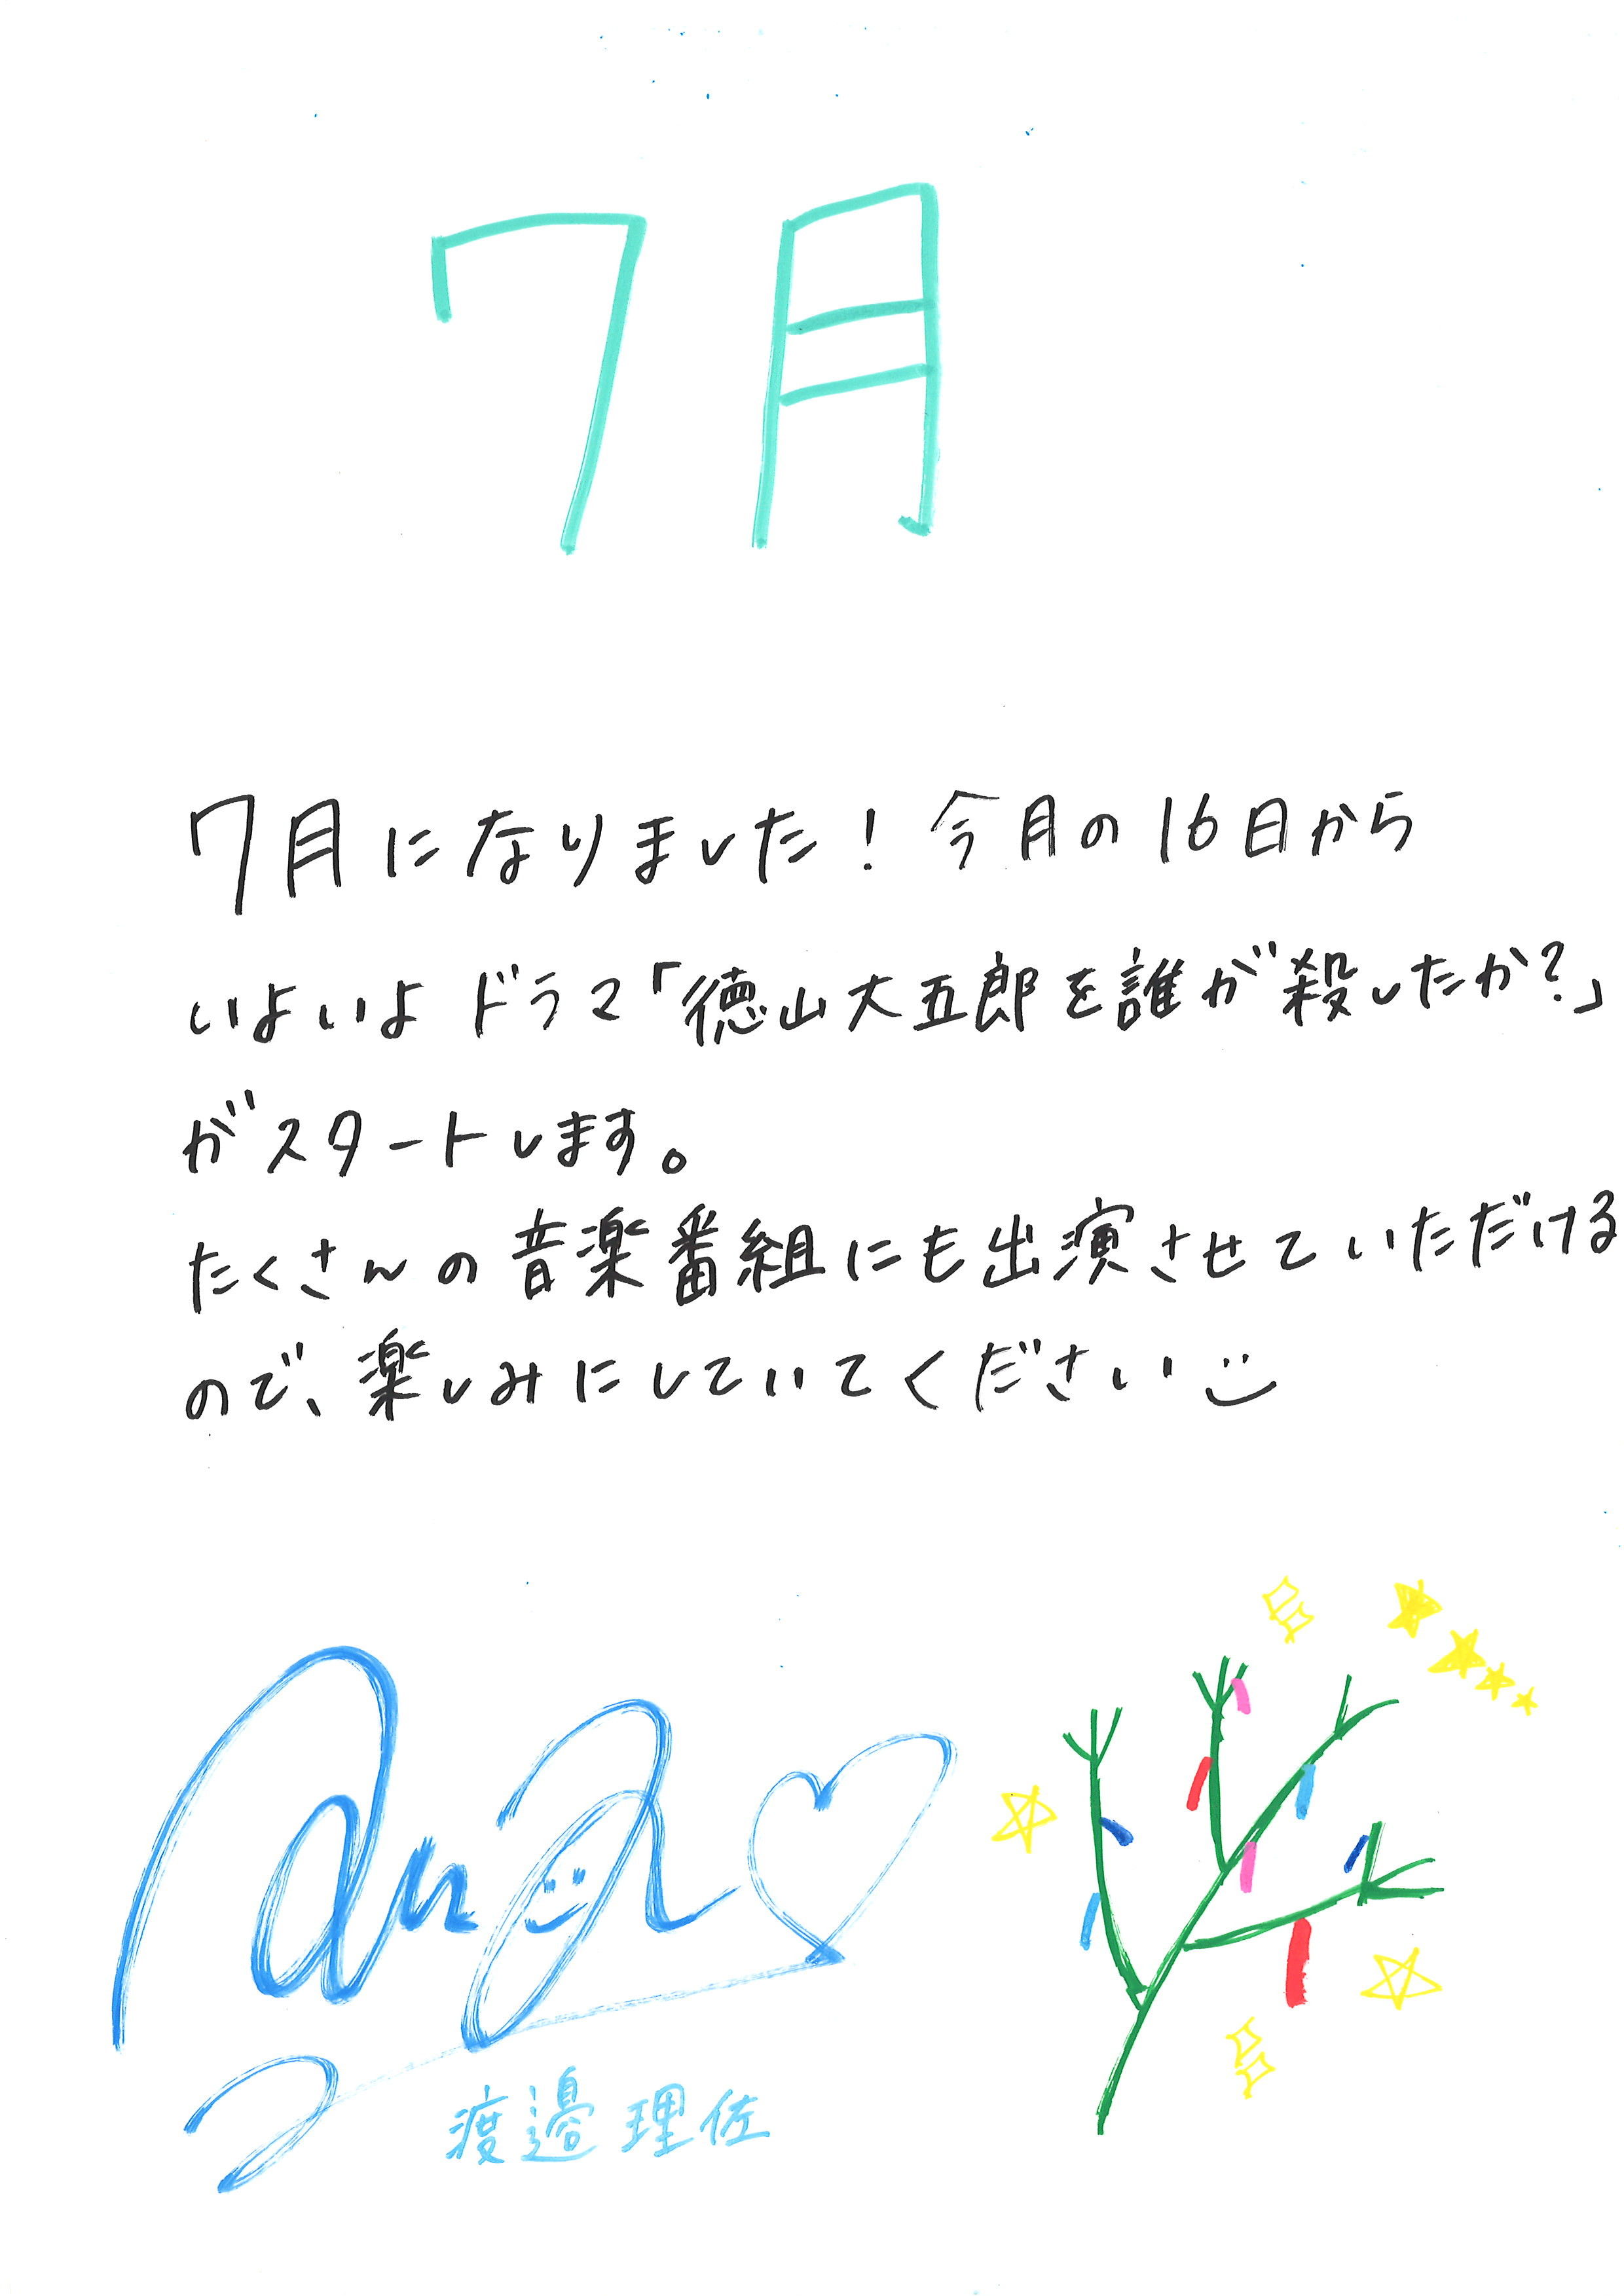 7月
7月になりました！今月の16日から
いよいよドラマ「徳山大五郎を誰が殺したか?」
がスタートします。
たくさんの音楽番組にも出演させていただける
ので、楽しみにしていてください
渡邉理佐